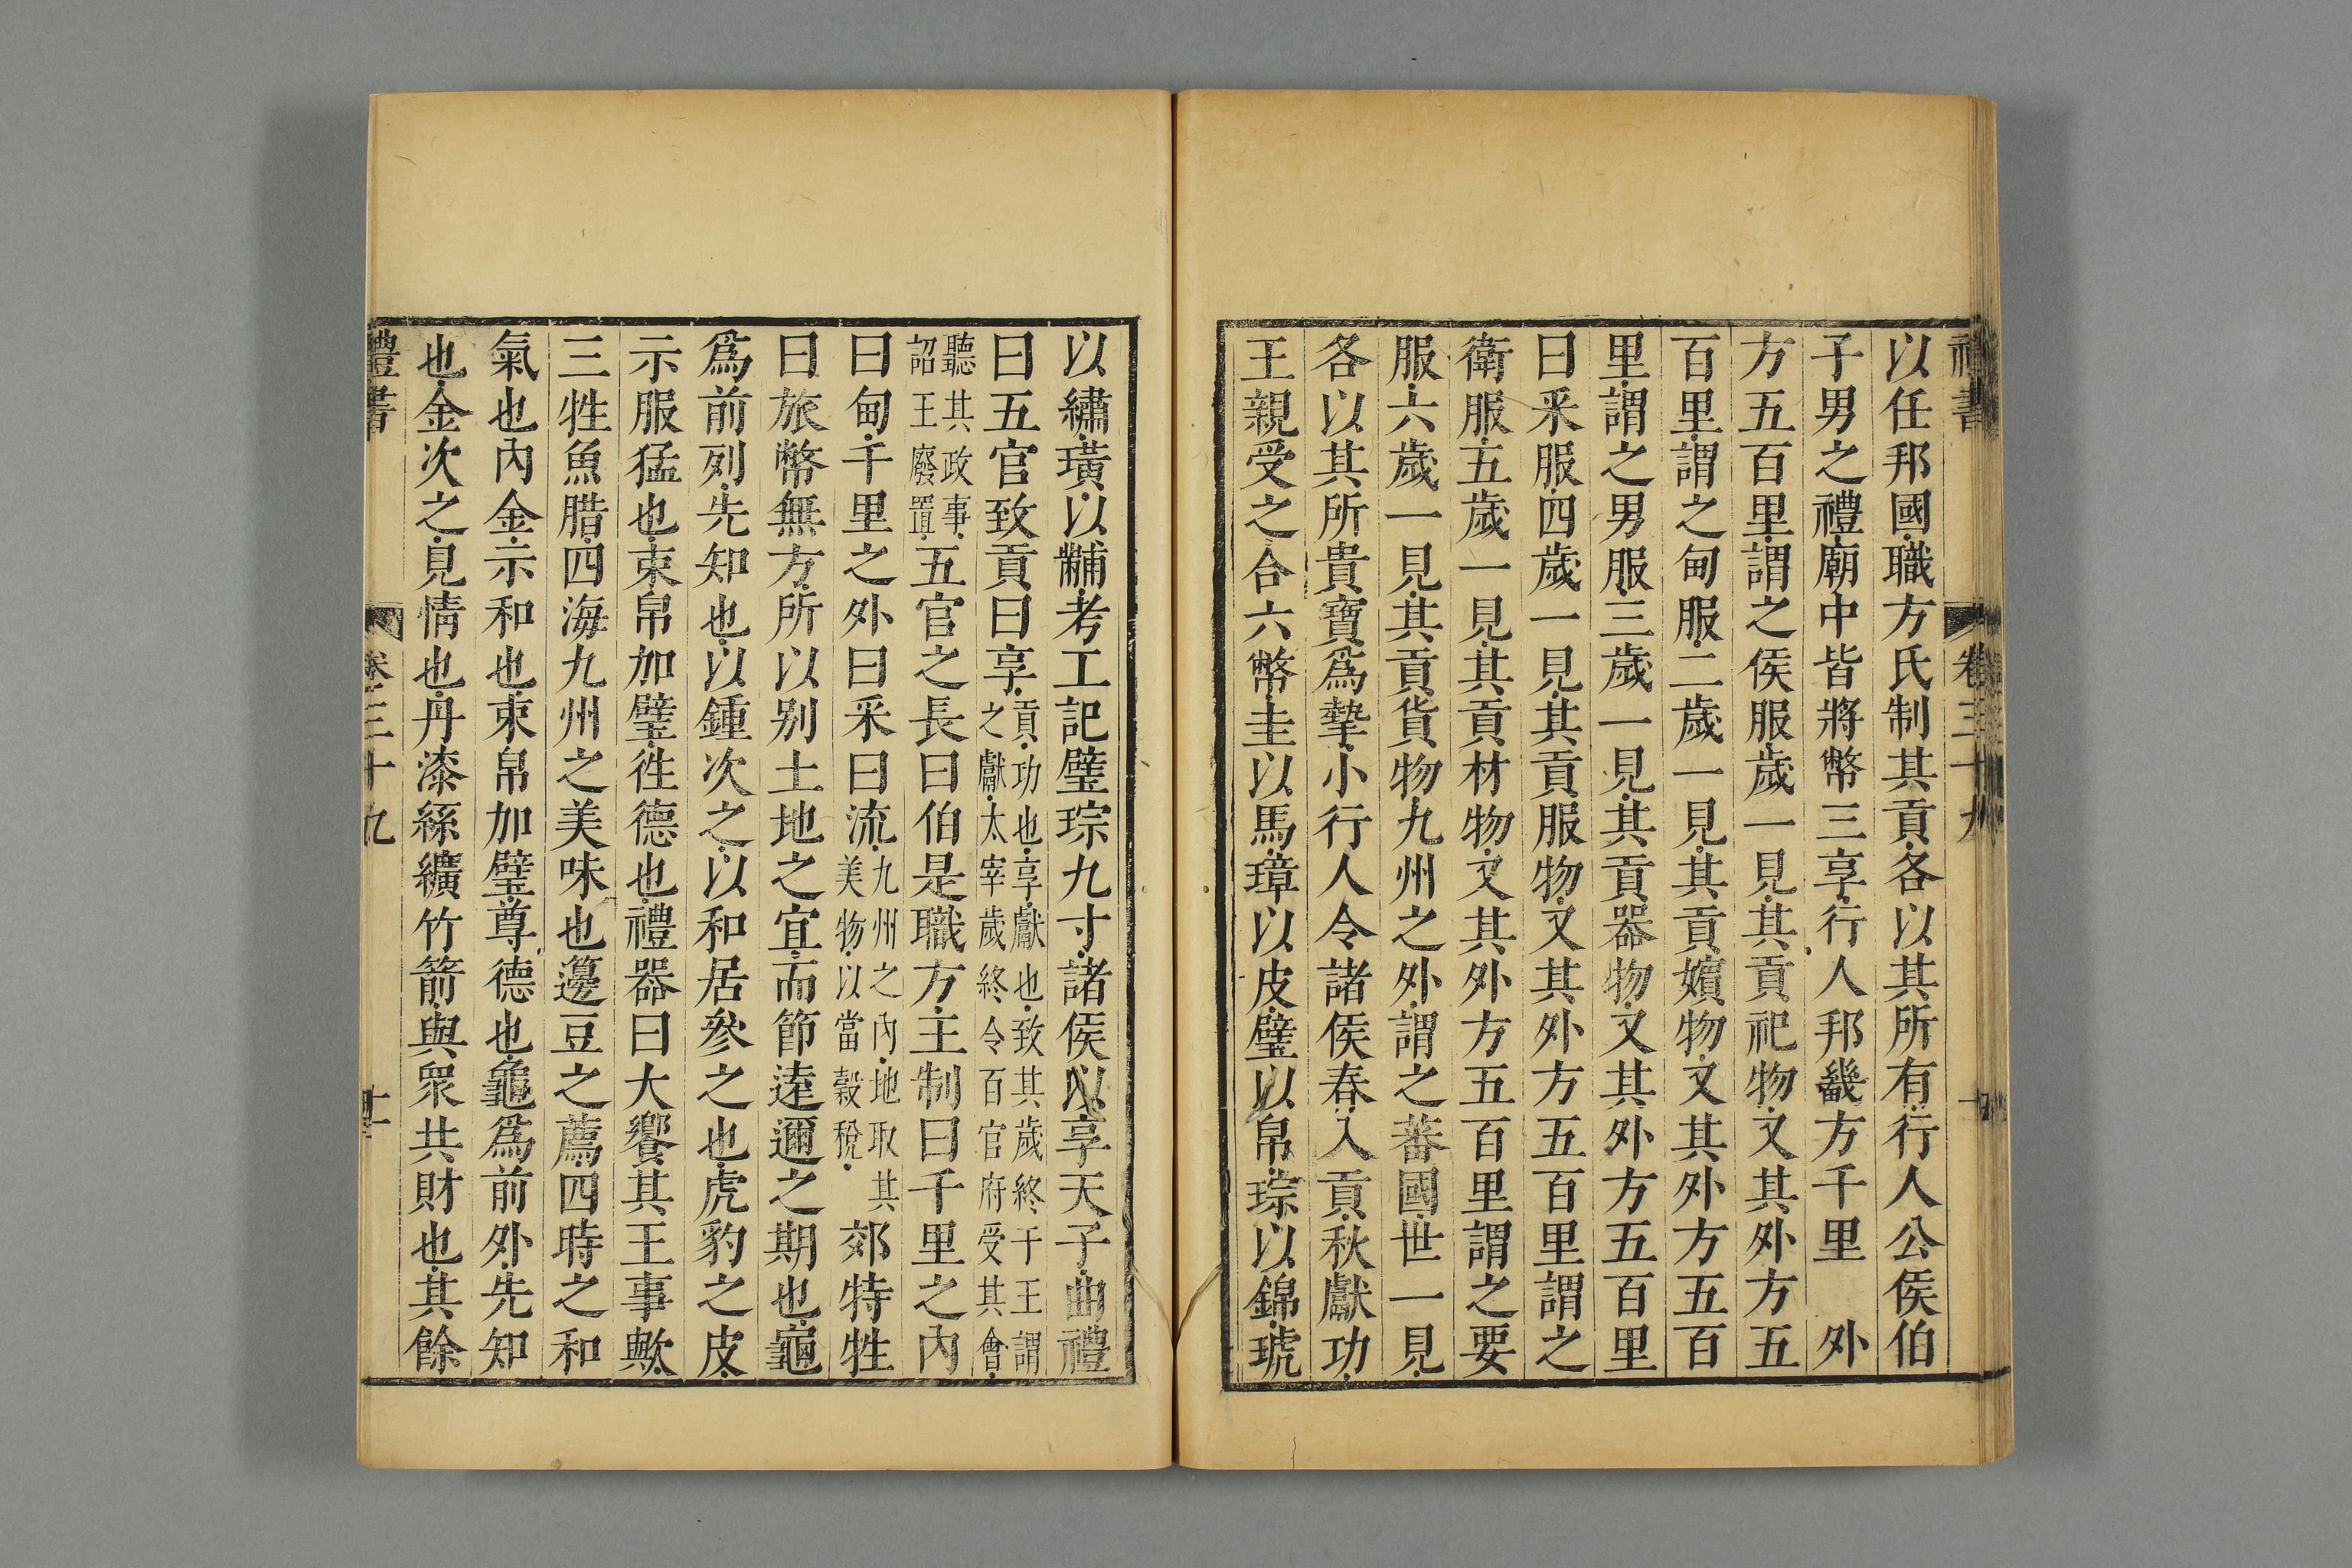 禮書
卷三十九
十
以任邦國職方氏制其貢各以其所有行人公侯伯
子男之禮廟中皆將幣三享行人邦畿方千里 外
方五百里謂之侯服歲一見其貢祀物又其外方五
百里謂之甸服二歲一見其貢嬪物又其外方五百
里謂之男服三歲一見其貢器物又其外方五百里
曰采服四歲一見其貢服物又其外方五百里謂之
衛服五歲一見其貢材物又其外方五百里謂之要
服六歲一見其貢貨物九州之外謂之蕃國世一見
各以其所貴寶爲摯小行人令諸侯春入貢秋獻功
王親受之合六幣圭以馬璋以皮璧以帛琮以錦琥
以繡璜以黼考工記璧琮九寸諸侯以享天子曲禮
曰五官致貢曰享
貢功也享獻也致其歲終于王謂
之獻太宰歲終令百官府受其會
聽其政事
詔王廢置
五官之長曰伯是職方主制曰千里之內
曰甸千里之外曰采曰流
九州之內地取其
美物以當穀稅
郊特牲
曰旅幣無方所以別土地之宜而節逺邇之期也龜
爲前列先知也以鍾次之以和居參之也虎豹之皮
示服猛也束帛加璧徃德也禮器曰大饗其王事歟
三牲魚腊四海九州之美味也籩豆之薦四時之和
氣也內金示和也束帛加璧尊德也龜爲前外先知
也金次之見情也丹漆絲纊竹箭與眾共財也其餘
禮書
卷三十九
十一